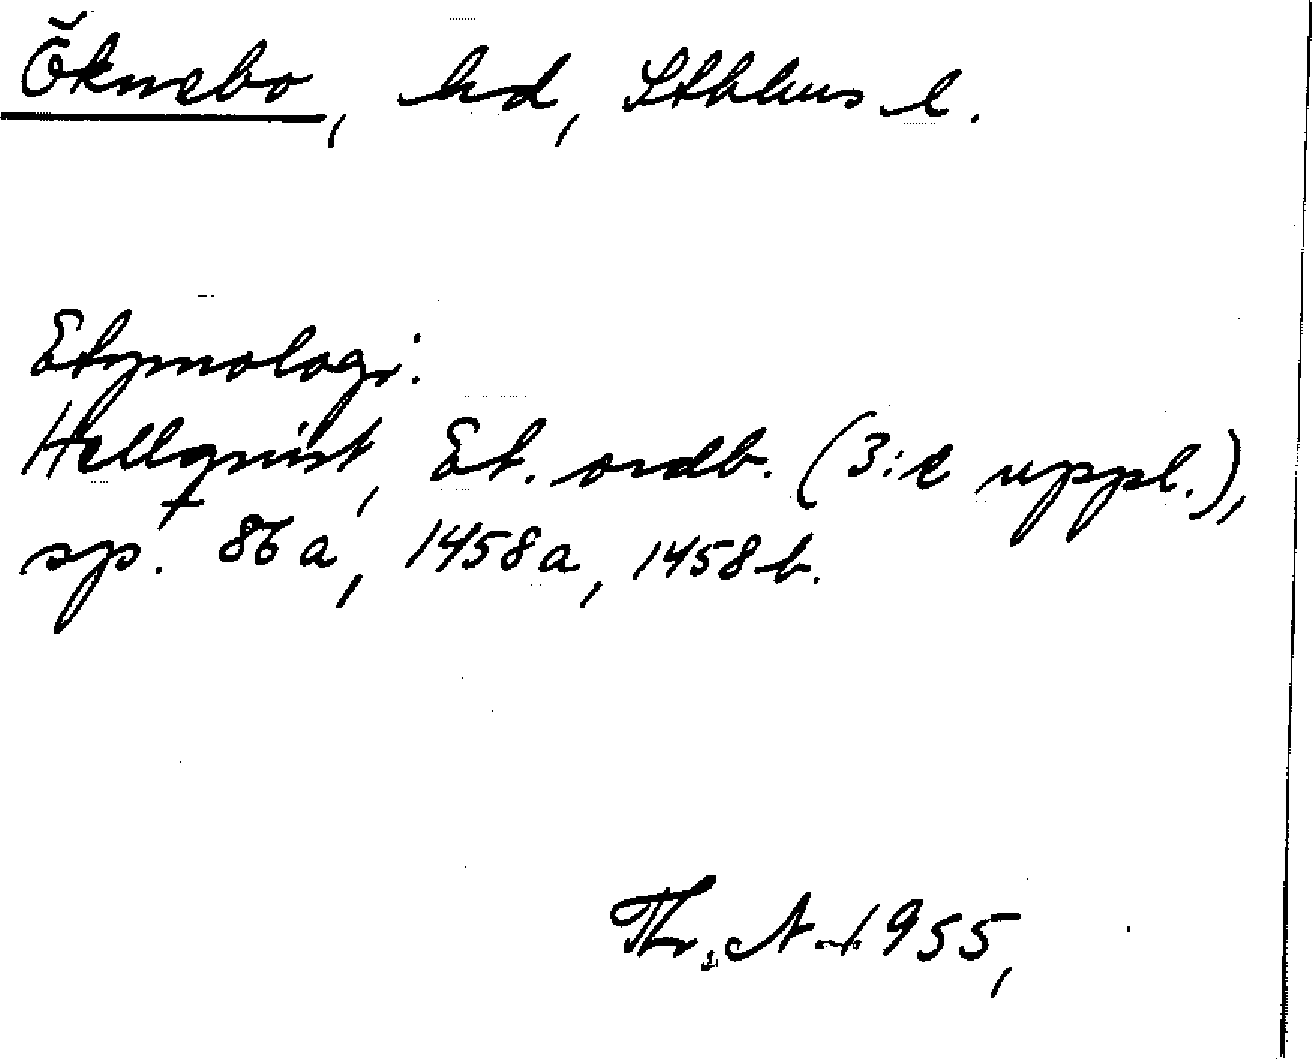 Öknebo, hd, Sthlms l.
Etymologi:
Hellquist, Et. ordb. (3:e uppl.),
sp. 86 a, 1458 a, 1458 b.
Thr. N. 1955,